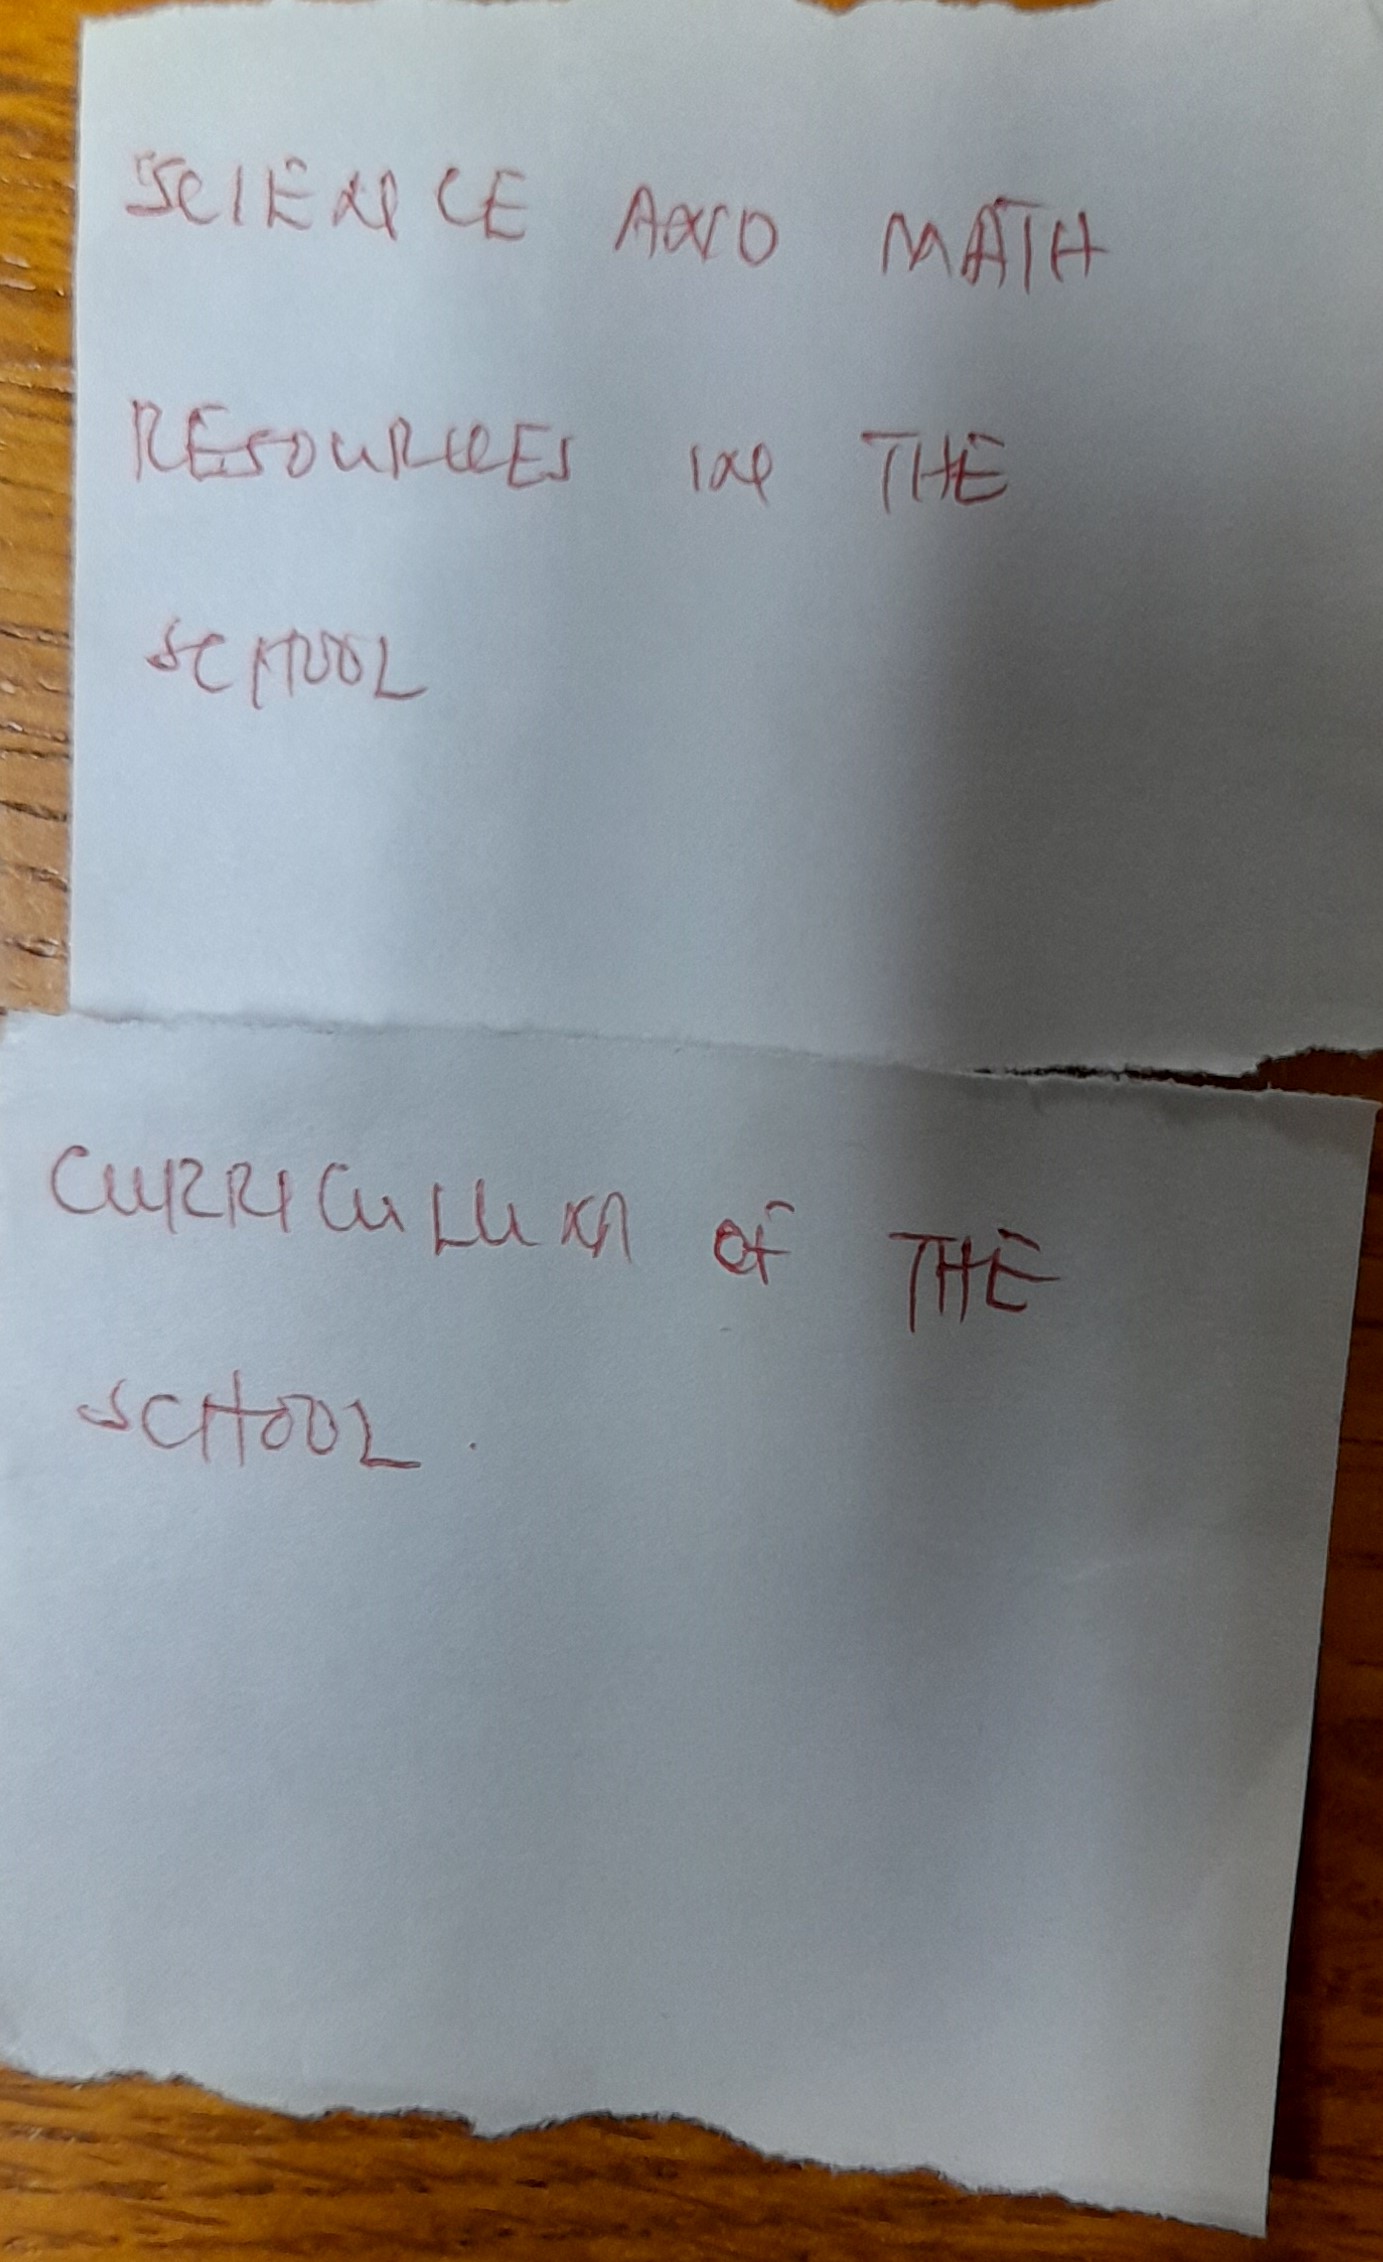 SCIENCE AND MATH
RESOURCES IN THE
SCHOOL
CURRICULUM OF THE
SCHOOL.